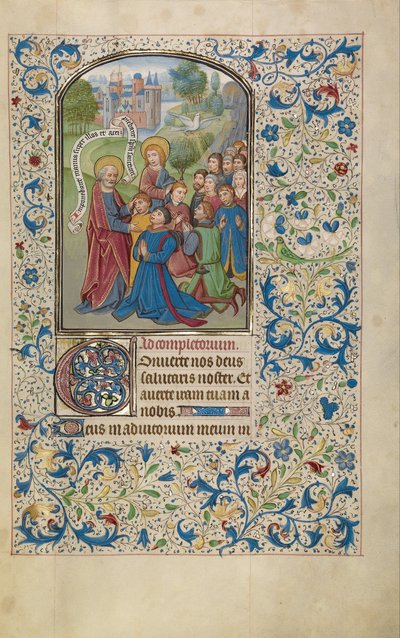 Imponebant manus super illas et acci
Ad completorium.
Conuerte nos deus
salutaris noster. Et
auerte iram tuam a
nobis
Deus in adiutorium meum in